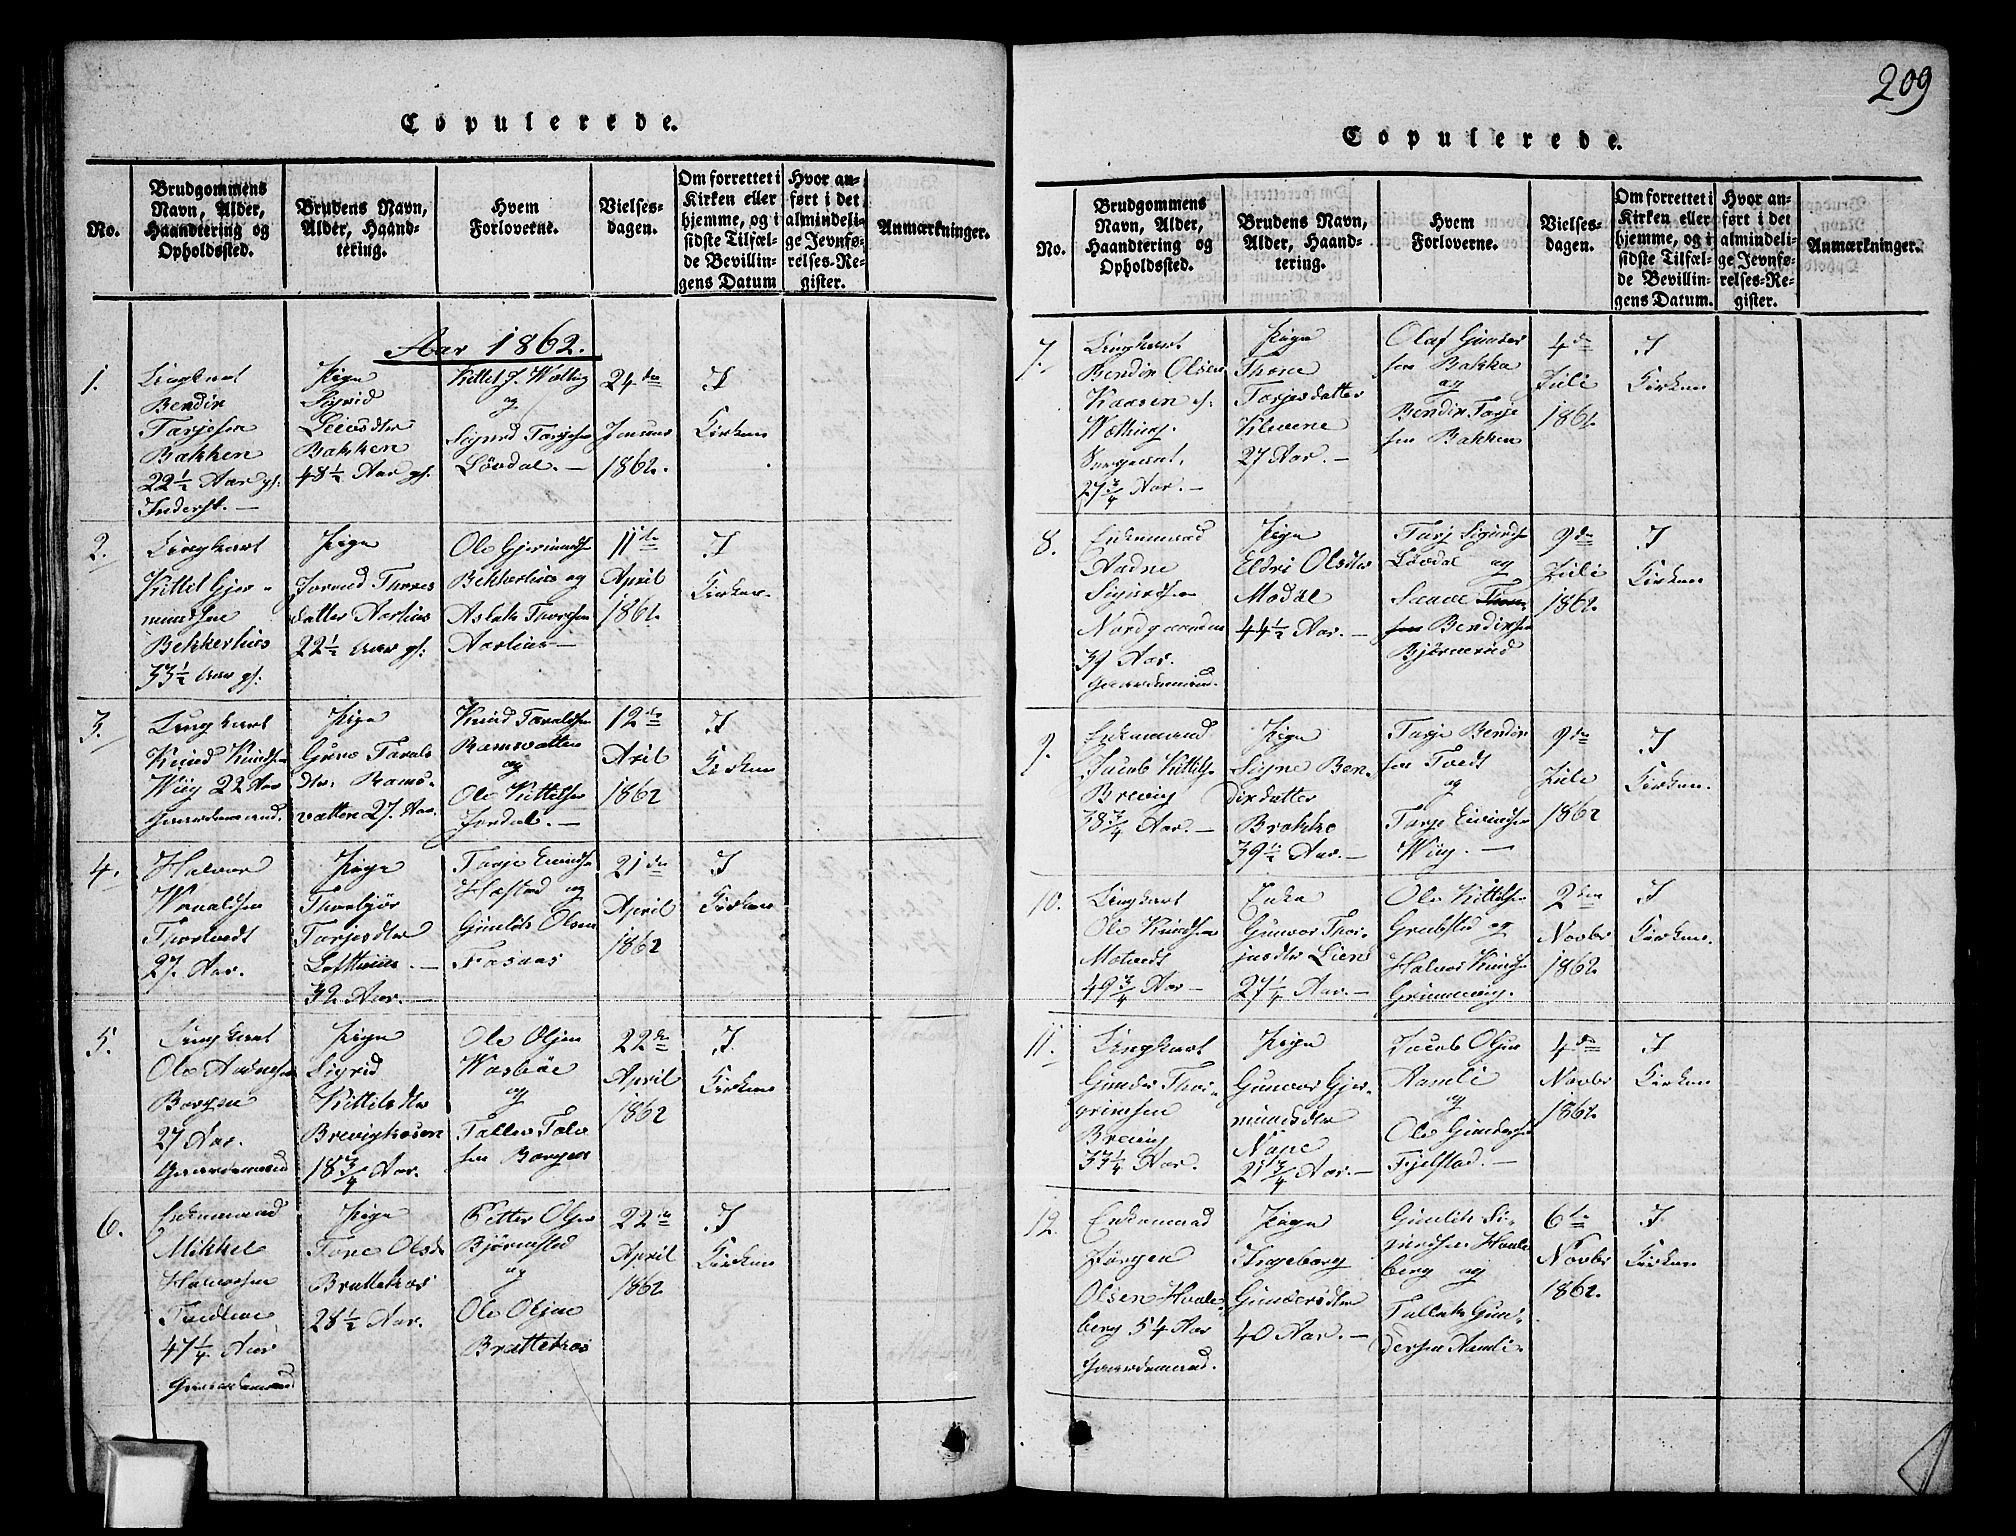 209
Copulerede.
No.
Brudgommens
Navn, Alder,
Haandtering og
Opholdssted.
Brudens Navn,
Alder, Haand-
tering.
Hvem
Forloverne.
Vielses-
dagen.
Om forrettet i
Kirken eller
hjemme, og i
sidste Tilfæl-
de Bevillin-
gens Datum
Hvor an-
ført i det
almindeli-
ge Jevnfø-
relses-Re-
gister.
Anmærkninger.
Aar 1862.
1.
Ungkarl
Bendix
Tarjesen
Bakken
22½ Aar gl.
Inderst.
Pige
Sigrid
Leivsdtr
Bakken
48½ Aar gl.
Kittel J.
og
Sigurd Tarjesen
Løvdal. —
24de
Januar
1862.
I
Kirken
2.
Ungkarl
Kittel Gjer-
mundsen
Bekkerhus
33½ Aar gl.
Pige
Jorand Thores
datter Aarlius
22½ Aar gl.
Ole Gjermunds.
Bekkerhus og
Aslak Thorsen
Aarlius —
11te
April
1862.
I
Kirken.
3.
Ungkarl
Knud Knudsen
Wiig 22 Aar
Gaardmand.
Pige
Guro Taralds
dtr. Rams-
vatten 27. Aar.
Knud Taraldsen
Ramsvatten
og
Ole Kittelsen
Jordal. —
12te
Aril
1862
I
Kirken
4.
Halvor
27. Aar.
Pige
Thorbjør
Tarjesdtr
32 Aar. —
Tarje Eivindsen
Hastad og
Gunleik Olsen
Fosaas
21de
April
1862
I
Kirken
5.
Ungkarl
Ole Aadnesen
Borgen
27 Aar.
Gaardemand
Pige
Sigrid
Kittelsdtr
Brevigkasen
18¾ Aar.
Ole Olsen
Wasbøe
og
Tallev Tale
sen Borgen
22de
April
1862
I
Kirken
6.
Enkemand
Mikkel
Halvorsen
47¼ Aar
Gaardemand
Pige
Tone Olsd.
Brattekos
28½ Aar.
Petter Olsen
Bjørnstad
og
Ole Olsen
Brattekos
22de
April
1862
I
Kirken
Copulerede.
No.
Brudgommens
Navn, Alder,
Haandtering og
Opholdssted.
Brudens Navn,
Alder, Haand-
tering.
Hvem
Forloverne.
Vielses-
dagen.
Om forrettet i
Kirken eller
hjemme, og i
sidste Tilfæl-
de Bevillin-
gens Datum.
Hvor an-
ført i det
almindeli-
ge Jevnfø-
relses-Re-
gister.
Anmærkninger.
7.
Ungkarl
Bendix Olsen
Kaasen
27¾ Aar. —
Pige
Thone
Tarjesdatter
Klevene
27 Aar. —
Olaf Gunder
sen Bakka
og
Bendix Tarje
sen Bakken
4de
Juli
1862
I
Kirken
8.
Enkemand
Aadne
Sigurdsen
Nordgaarden
39 Aar.
Gaardemand.
Pige
Eldri Olsdtr
Modal
44½ Aar. —
Tarj Sigurds.
Løvdal og
Bendixsen
Bjørnerud
9de
Juli
1862.
I
Kirken
9.
Enkemand
Jacob Kittels.
Brevig
38¾ Aar. —
Pige
Signe Ben-
dixdatter
Brakke
39½ Aar. —
Tarje Bendix
sen Tvedt
og
Tarje Eivindsen
Wiig. —
9de
Juli
1862
I
Kirken.
10.
Ungkarl
Ole Knudsen
Motvedt
49¾ Aar —
Enke
Gunvor Thor-
jusdtr Liene
27¼ Aar. —
Ole Kittelsen
Grubstad og
Halvor Knuds.
2den
Novbr
1862.
I
Kirken.
11.
Ungkarl
Gunder Thor-
grimsen
Breivig
33¼ Aar.
Pige
Gunvor Gjer-
mundsdtr
Nape
21¾ Aar. —
Jacob Olsen
Aamli
og
Ole Gundersen
Fjelstad. —
4de
Novbr
1862.
I
Kirken
12.
Enkemand
Jørgen
Olsen Hvale-
berg 54 Aar
Gaardemand.
Pige
Ingeborg
Gundersdtr
40 Aar. —
Gunleik Si-
gurdsen Hvale
berg og
Tallak Gun-
dersen Aamli.
6te
Novbr
1862.
I
Kirken